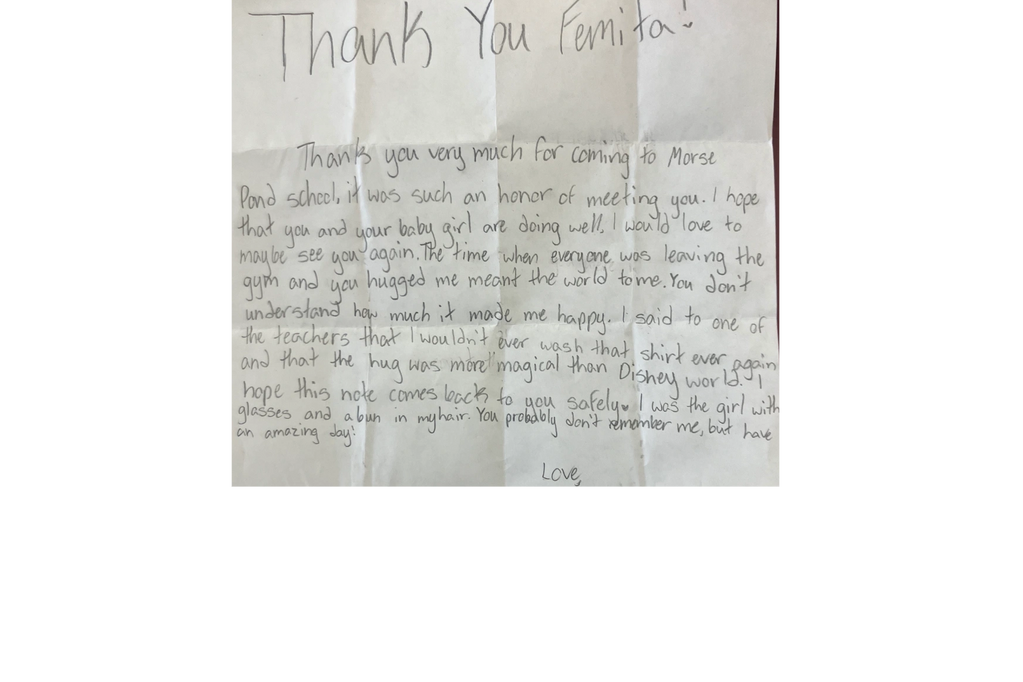 Thank You Femita!
Thank you very much for coming to Morse
Pond school, it was such an honor of meeting you. I hope
that you and your baby girl are doing well. I would love to
maybe see you again. The time when everyone was leaving the
gym and you hugged me meant the world to me. You don't
understand how much it made me happy. I said to one of
the teachers that I wouldn't ever wash that shirt ever again
and that the hug was more magical than Disney world. I
hope this note comes back to you safely♥ I was the girl with
glasses and a bun in my hair. You probably don't remember me, but have
an amazing day!
Love,